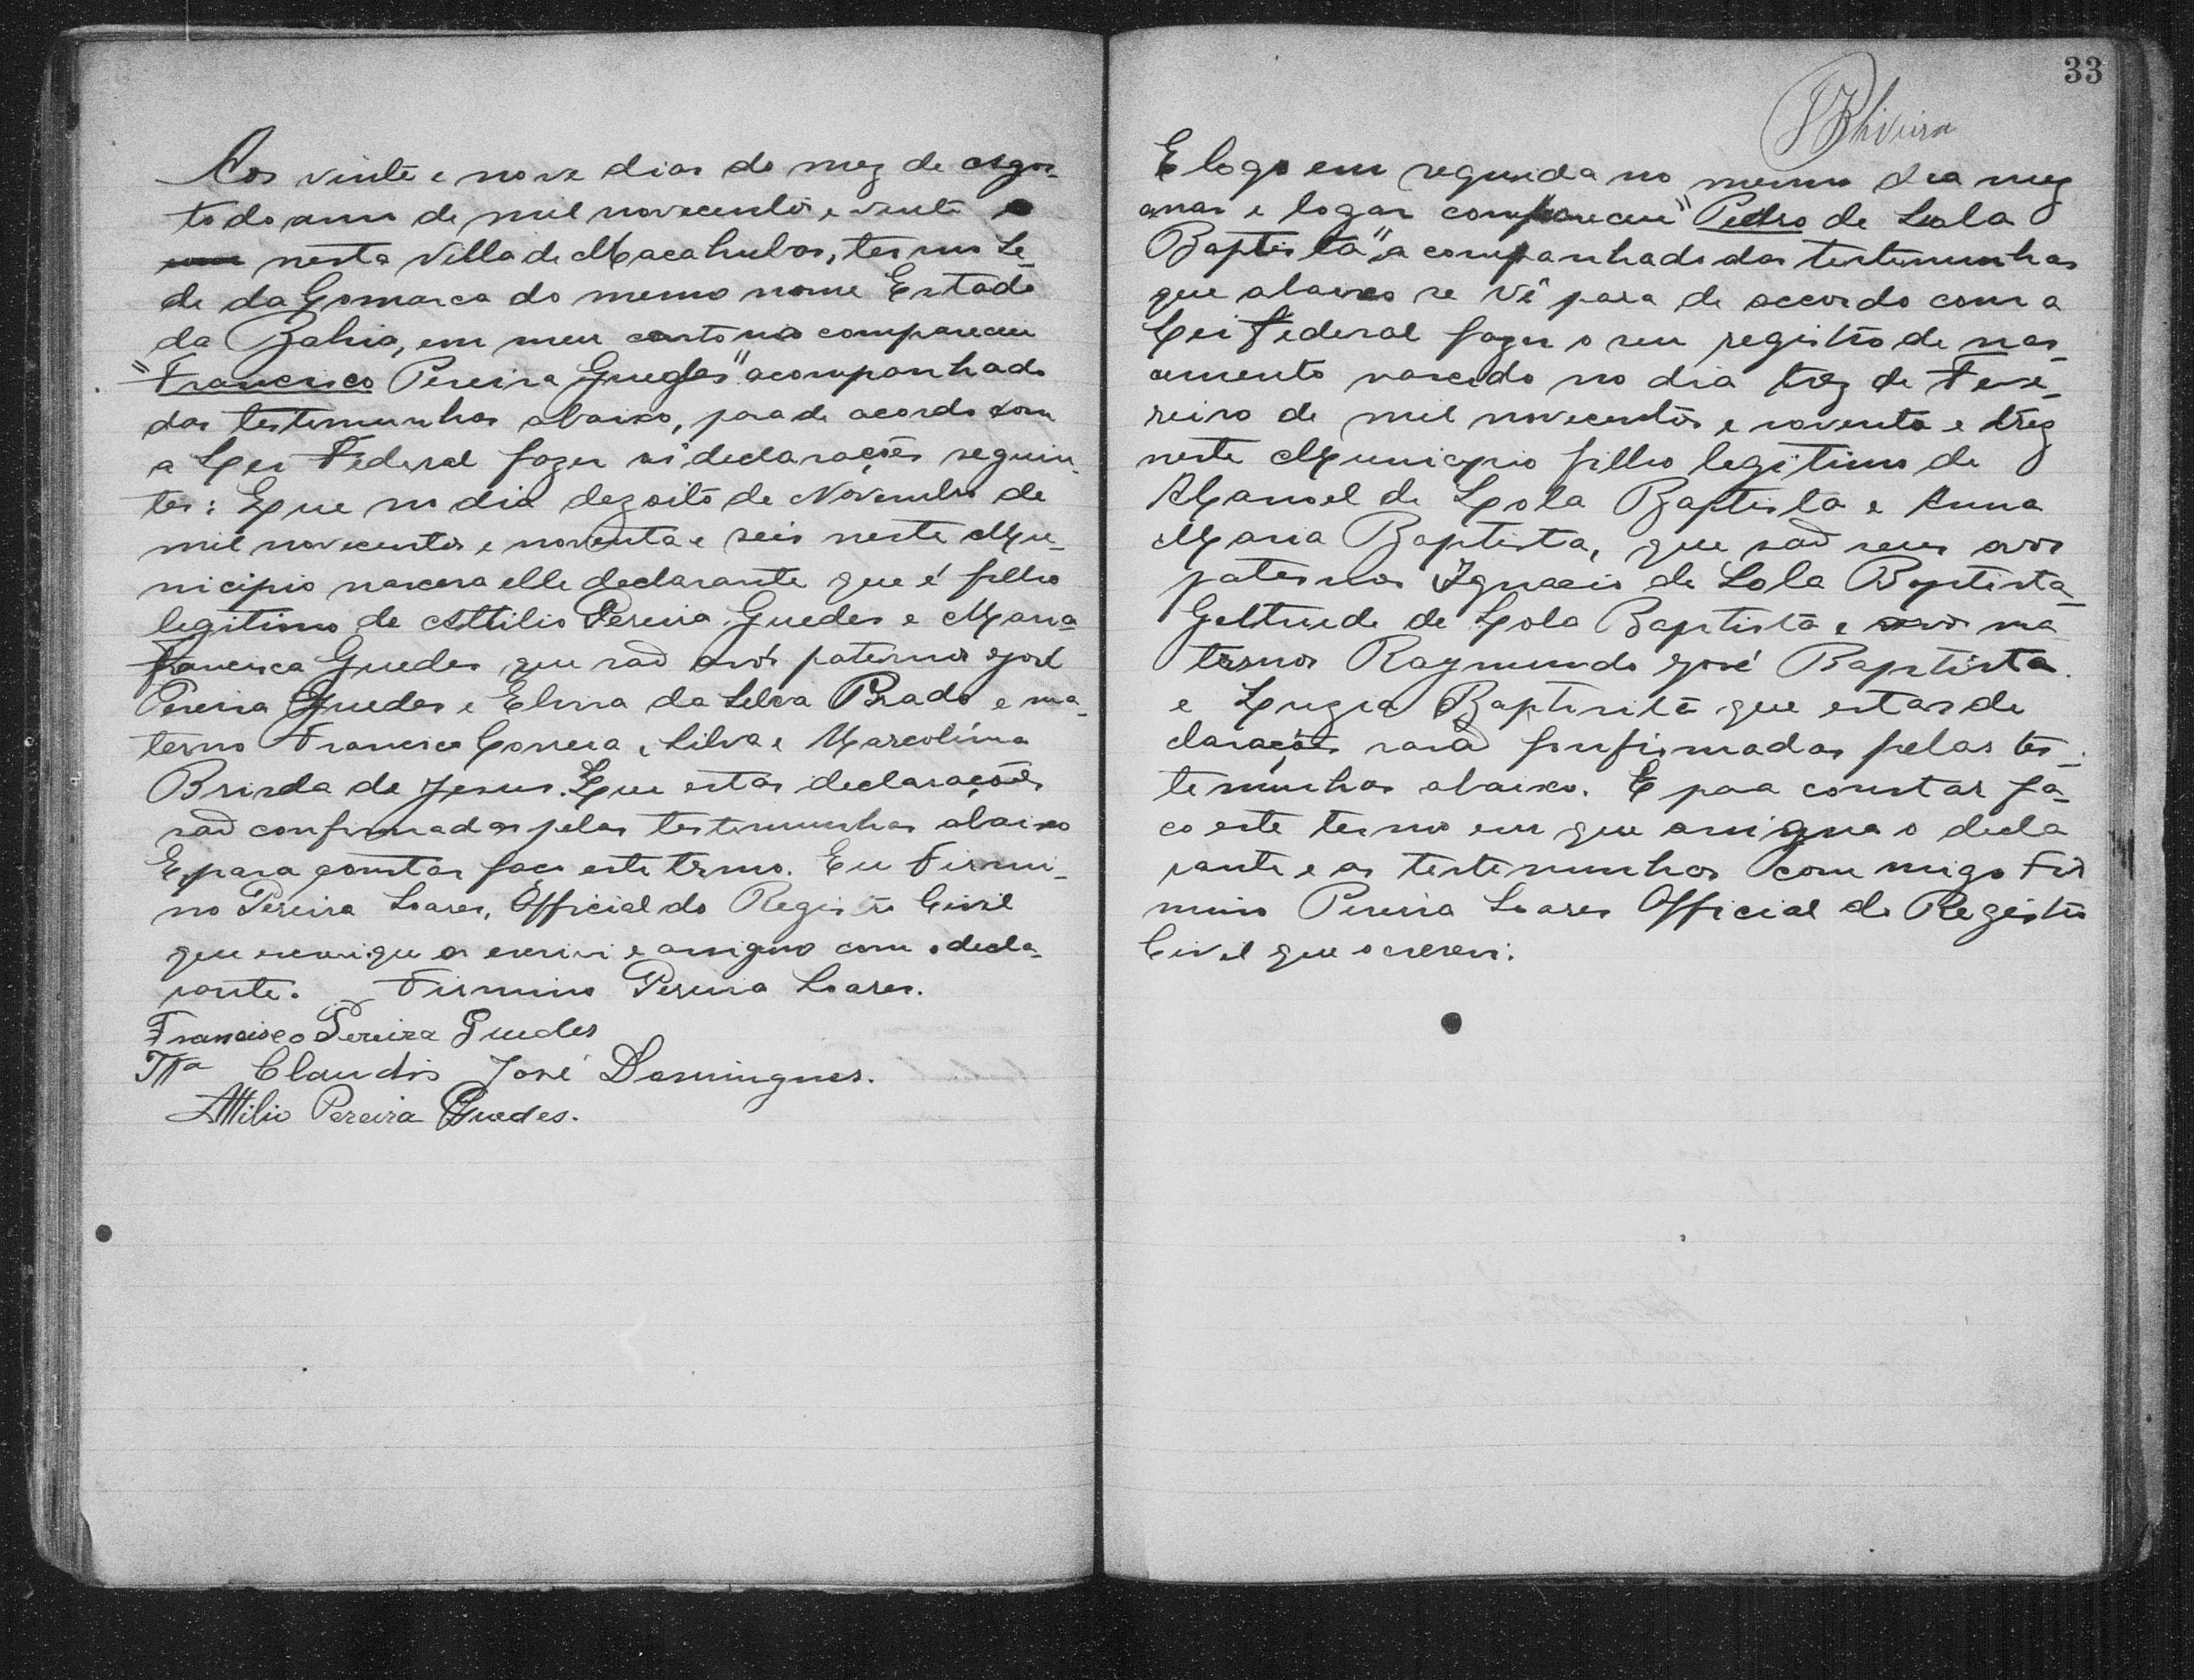 Aos vinte e nove dias do mez de Agos-
to do anno de mil novecentos e vinte
nesta Villa de Macahubas, termo Se-
de da Comarca do mesmo nome Estado
da Bahia, em meu cartorio compareceu
"Francisco Pereira Guedes" acompanhado
das testemunhas abaixo, para de acordo com
a Lei Federal fazer as declarações seguin-
tes: Que no dia dezoito de Novembro de
mil novecentos e noventa e seis neste Mu-
nicipio nascera elle declarante que é filho
legitimo de Attilio Pereira Guedes e Maria
Francisca Guedes que são avós paternos José
Pereira Guedes e Elvira da Silva Prado e ma-
terno Francisco Correia e Silva e Marcolina
de Jesus. Que estas declarações
são confirmadas pelas testemunhas abaixo
E para constar faço este termo. Eu Firmi-
no Pereira Soares, Official do Registro Civil
que escrevi e assigno com o decla-
rante. Firmino Pereira Soares.
Francisco Pereira Guedes
Tta Claudio José Domingues.
Attilio Pereira Guedes.
33
E logo em seguida no mesmo dia mez
annos e logar compareceu "Pedro de Lola
Baptista" acompanhado das testemunhas
que abaixo se vê para de accordo com a
Lei Federal fazer o seu registro de nas-
cimento nascido no dia trez de Feve-
reiro de mil novecentos e noventa e trez
neste Municipio filho legitimo de
Manoel de Lola Baptista e Anna
Maria Baptista, que são seus avós
paternos Ignacio de Lola Baptista
Geltrude de Lola Baptista e avós ma
ternos Raymundo José Baptista.
e Luzia Baptista que estas de
clarações são confirmadas pelas tes-
temunhas abaixo. E para constar fa-
ço este termo em que assigna o decla
rante e as testemunhas commigo Fir
mino Pereira Soares Official do Registro
Civil que o escrevi.